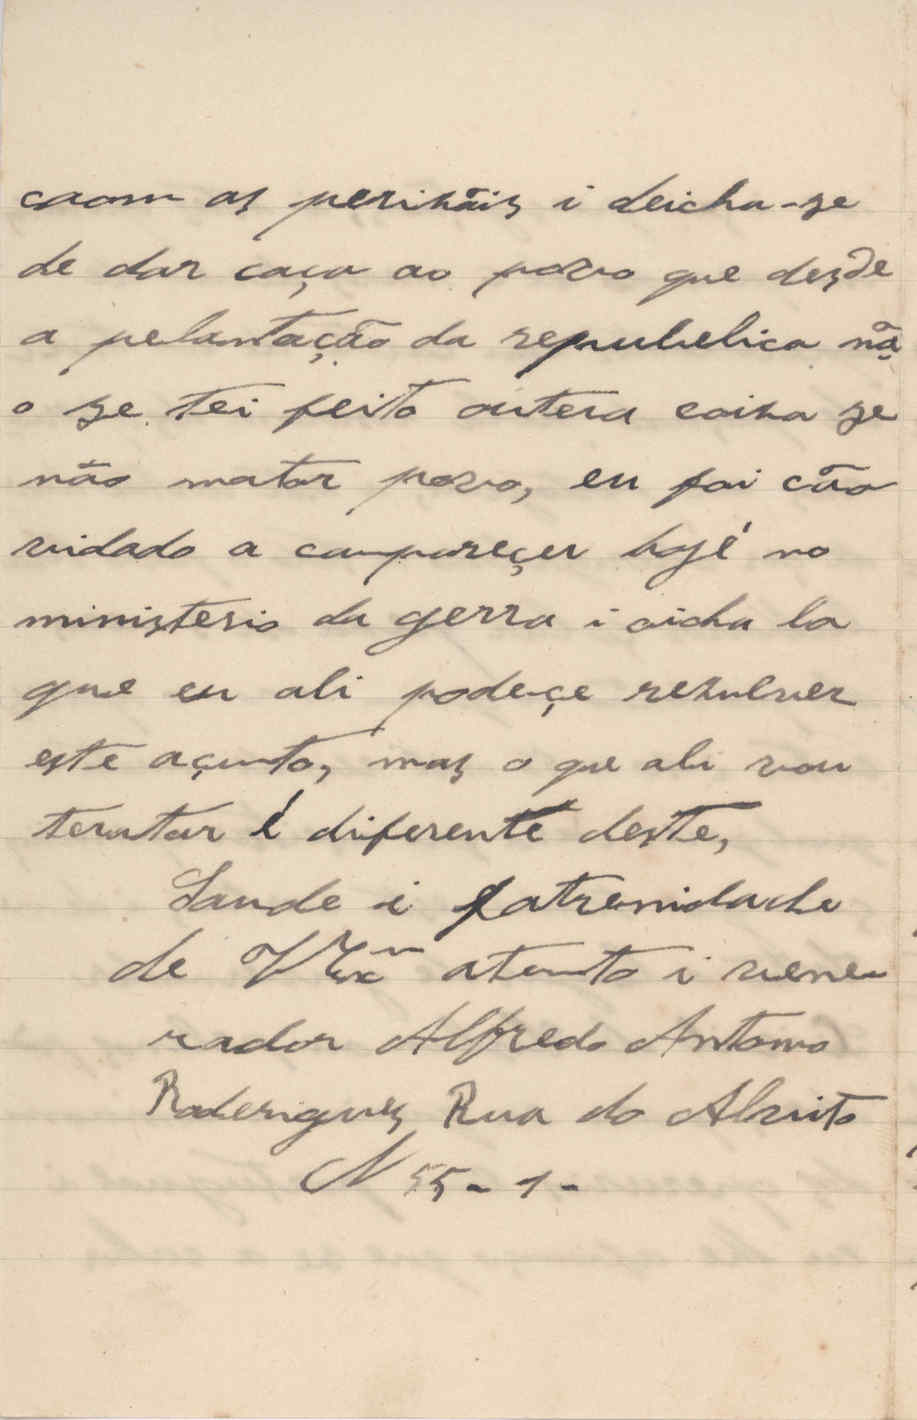 caom as perizõis i deicha-se
de dar caça ao povo que desde
a pelantação da repubelica nã
o se tei feito outera coiza se
não matar povo, eu foi cão
vidado a campareçer hojé no
ministerio da gerra i oicha la
que eu ali podeçe rezulver
este açunto, mas o que ali vou
teratar é diferente deste,
Saude i fatrenidade
de V Exª atento i vene
rador Alfredo Antonio
Roderigues Rua do Alvito
N 55-1-